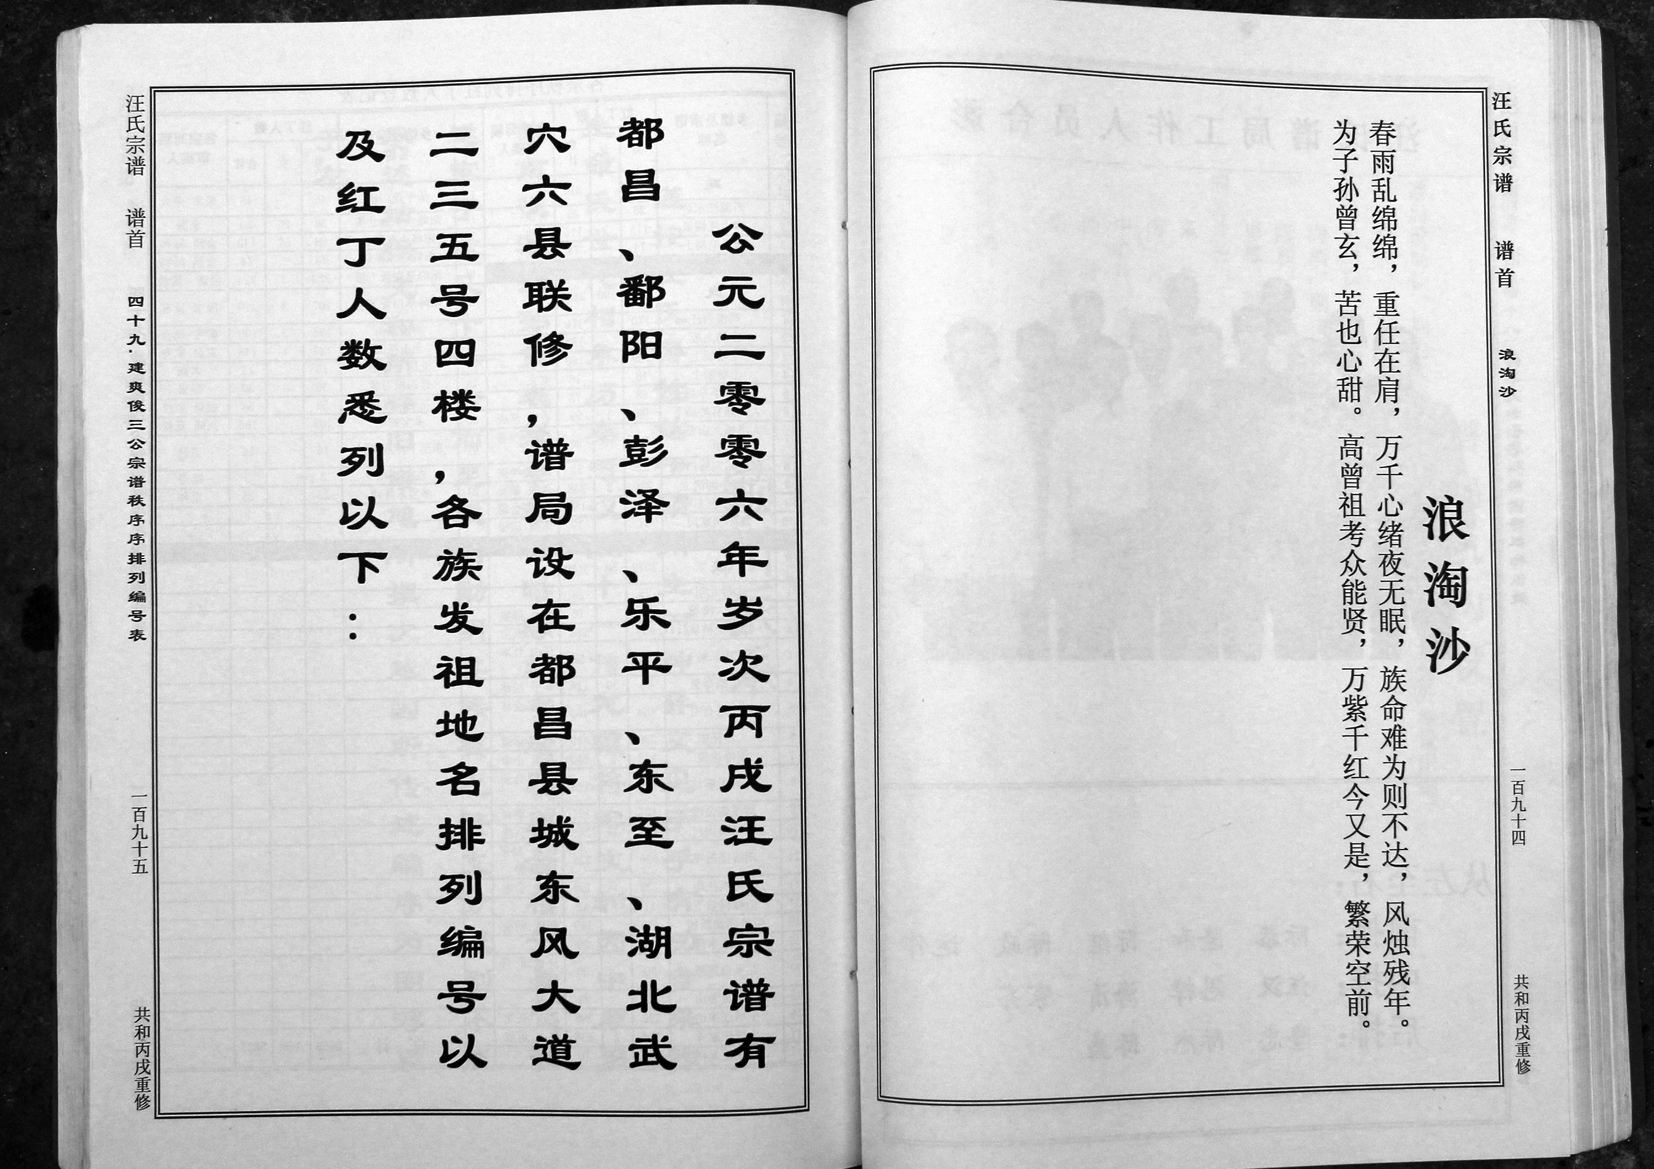 汪氏宗谱 谱首 浪淘沙 一百九十四 共和丙戌重修
浪淘沙
春雨乱绵绵，重任在肩，万千心绪夜无眠，族命难为则不达，风烛残年。
为子孙曾玄，苦也心甜。高曾祖考众能贤，万紫千红今又是，繁荣空前。
公元二零零六年岁次丙戌汪氏宗谱有
都昌、鄱阳、彭泽、乐平、东至、湖北武
穴六县联修，谱局设在都昌县城东风大道
二三五号四楼，各族发祖地名排列编号以
及红丁人数悉列以下：
汪氏宗谱 谱首 四十九·建爽俊三公宗谱秩序序排列编号表 一百九十五 共和丙戌重修